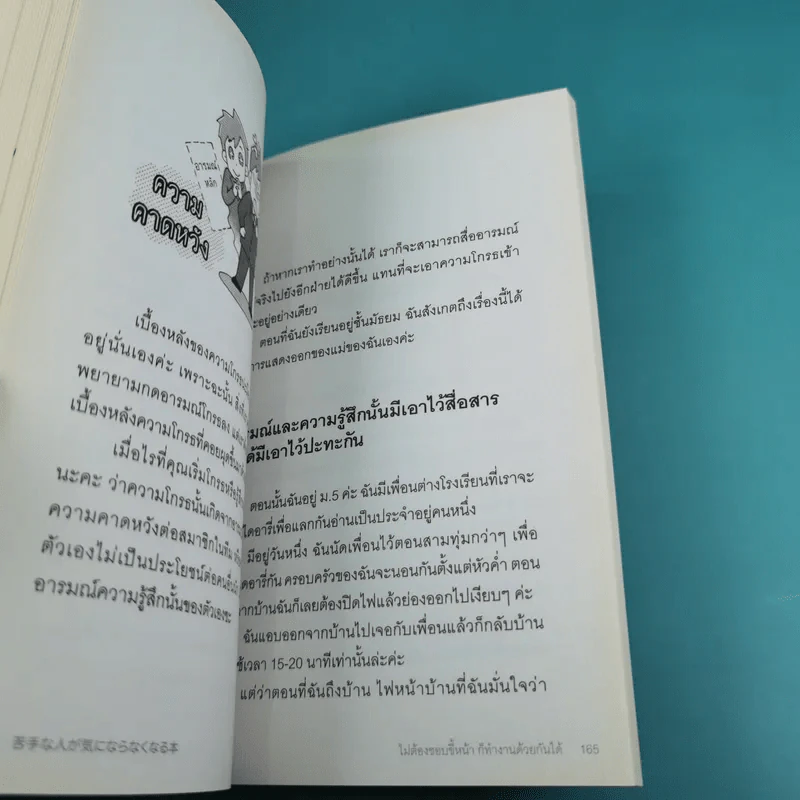 อารมณ์
หลัก
ความ
คาดหวัง
เบื้องหลังของความโกรธ
อยู่นั่นเองค่ะ เพราะฉะนั้น
พยายามกดอารมณ์โกรธลง
เบื้องหลังความโกรธที่คอยผุดขึ้นมา
เมื่อไรที่คุณเริ่มโกรธหรือ
นะคะ ว่าความโกรธนั้นเกิดจาก
ความคาดหวังต่อสมาชิกในทีม
ตัวเองไม่เป็นประโยชน์ต่อคนอื่น
อารมณ์ความรู้สึกนั้นของตัวเองซะ
苦手な人が気にならなくなる本
ถ้าหากเราทำอย่างนั้นได้ เราก็จะสามารถสื่ออารมณ์
จริงไปยังอีกฝ่ายได้ดีขึ้น แทนที่จะเอาความโกรธเข้า
ะอยู่อย่างเดียว
ตอนที่ฉันยังเรียนอยู่ชั้นมัธยม ฉันสังเกตถึงเรื่องนี้ได้
ารแสดงออกของแม่ของฉันเองค่ะ
รมณ์และความรู้สึกนั้นมีเอาไว้สื่อสาร
ด้มีเอาไว้ปะทะกัน
ตอนนั้นฉันอยู่ ม.5 ค่ะ ฉันมีเพื่อนต่างโรงเรียนที่เราจะ
ไดอารี่เพื่อแลกกันอ่านเป็นประจำอยู่คนหนึ่ง
มีอยู่วันหนึ่ง ฉันนัดเพื่อนไว้ตอนสามทุ่มกว่าๆ เพื่อ
ดอารี่กัน ครอบครัวของฉันจะนอนกันตั้งแต่หัวค่ำ ตอน
ากบ้านฉันก็เลยต้องปิดไฟแล้วย่องออกไปเงียบๆ ค่ะ
ฉันแอบออกจากบ้านไปเจอกับเพื่อนแล้วก็กลับบ้าน
ช้เวลา 15-20 นาทีเท่านั้นล่ะค่ะ
แต่ว่าตอนที่ฉันถึงบ้าน ไฟหน้าบ้านที่ฉันมั่นใจว่า
ไม่ต้องชอบขี้หน้า ก็ทำงานด้วยกันได้ 165